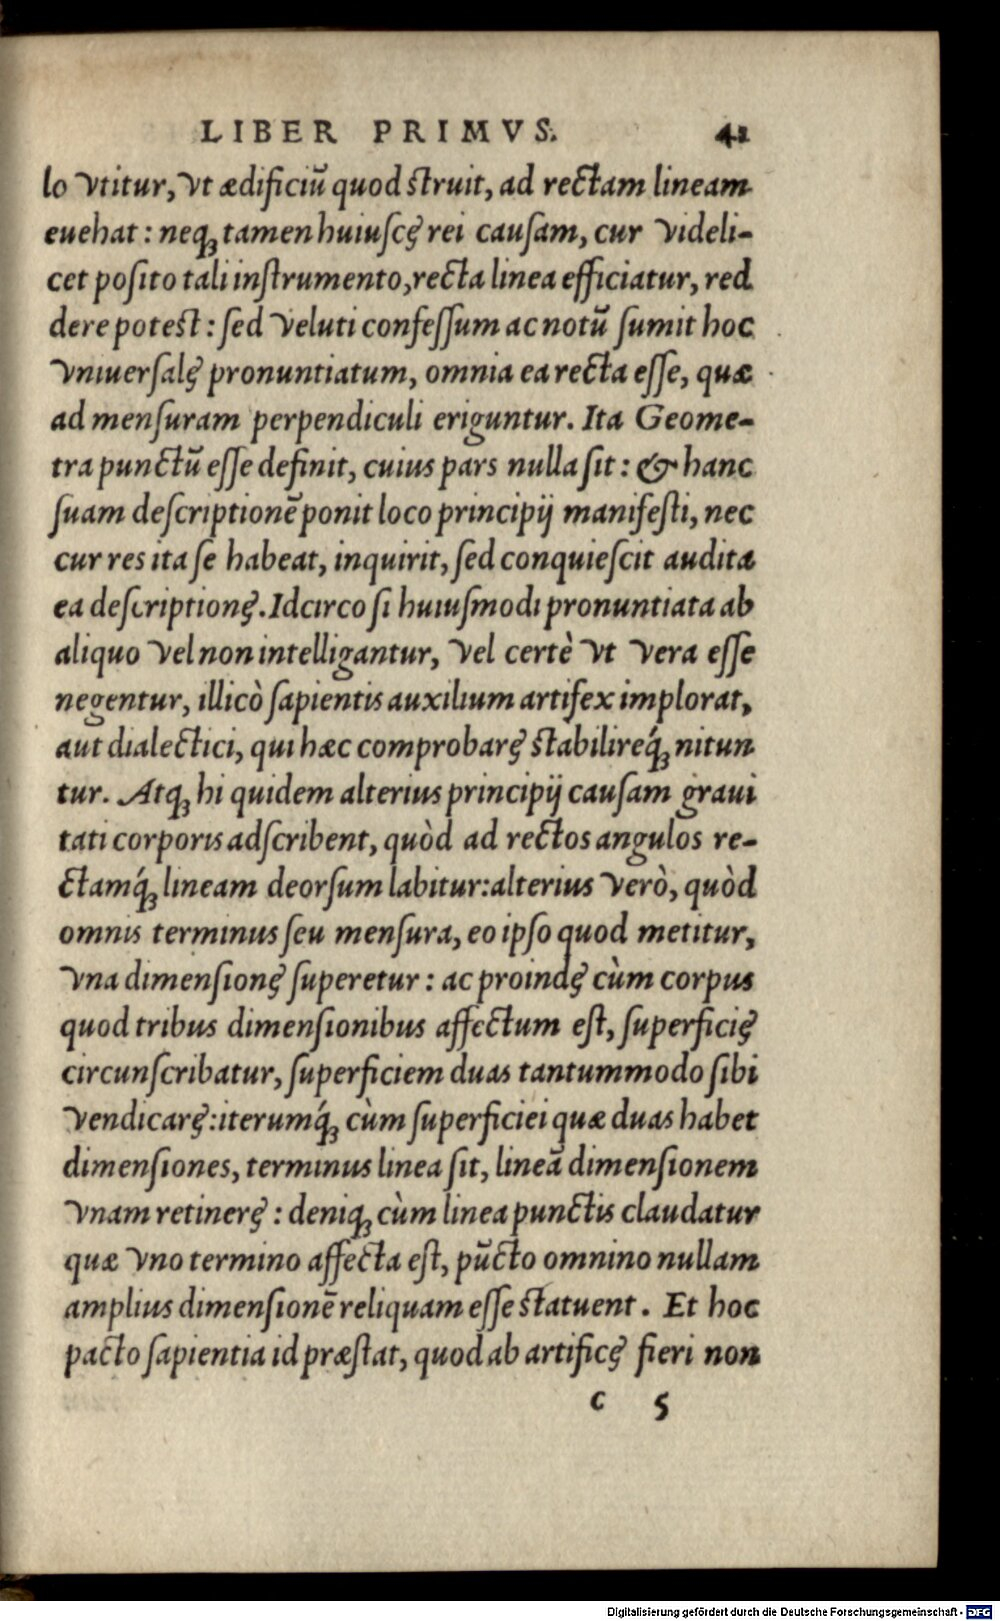 LIBER PRIMVS. 41
lo vtitur, vt ædificiũ quod ſtruit, ad rectam lineam
euehat: neq́ꝫ tamen huiuſcę rei cauſam, cur videli-
cet poſito tali inſtrumento, recta linea efficiatur, red
dere poteſt: ſed veluti confeſſum ac notũ ſumit hoc
vniuerſalę pronuntiatum, omnia ea recta eſſe, quæ
ad menſuram perpendiculi eriguntur. Ita Geome-
tra punctũ eſſe definit, cuius pars nulla ſit: & hanc
ſuam deſcriptionẽ ponit loco principij manifeſti, nec
cur res ita ſe habeat, inquirit, ſed conquieſcit audita
ea deſcriptionę. Idcirco ſi huiuſmodi pronuntiata ab
aliquo vel non intelligantur, vel certè vt vera eſſe
negentur, illicò ſapientis auxilium artifex implorat,
aut dialectici, qui hæc comprobarę ſtabilireq́ꝫ nitun
tur. Atqꝫ hi quidem alterius principij cauſam graui
tati corporis adſcribent, quòd ad rectos angulos re-
ctamq́ꝫ lineam deorſum labitur: alterius verò, quòd
omnis terminus ſeu menſura, eo ipſo quod metitur,
vna dimenſionę ſuperetur: ac proindę cùm corpus
quod tribus dimenſionibus affectum eſt, ſuperficię
circunſcribatur, ſuperficiem duas tantummodo ſibi
vendicarę: iterumq́ꝫ cùm ſuperficiei quæ duas habet
dimenſiones, terminus linea ſit, lineã dimenſionem
vnam retinerę: deniqꝫ cùm linea punctis claudatur
quæ vno termino affecta eſt, pũcto omnino nullam
amplius dimenſionẽ reliquam eſſe ſtatuent. Et hoc
pacto ſapientia id præſtat, quod ab artificę fieri non
c 5
Digitalisierung gefördert durch die Deutsche Forschungsgemeinschaft - DFG